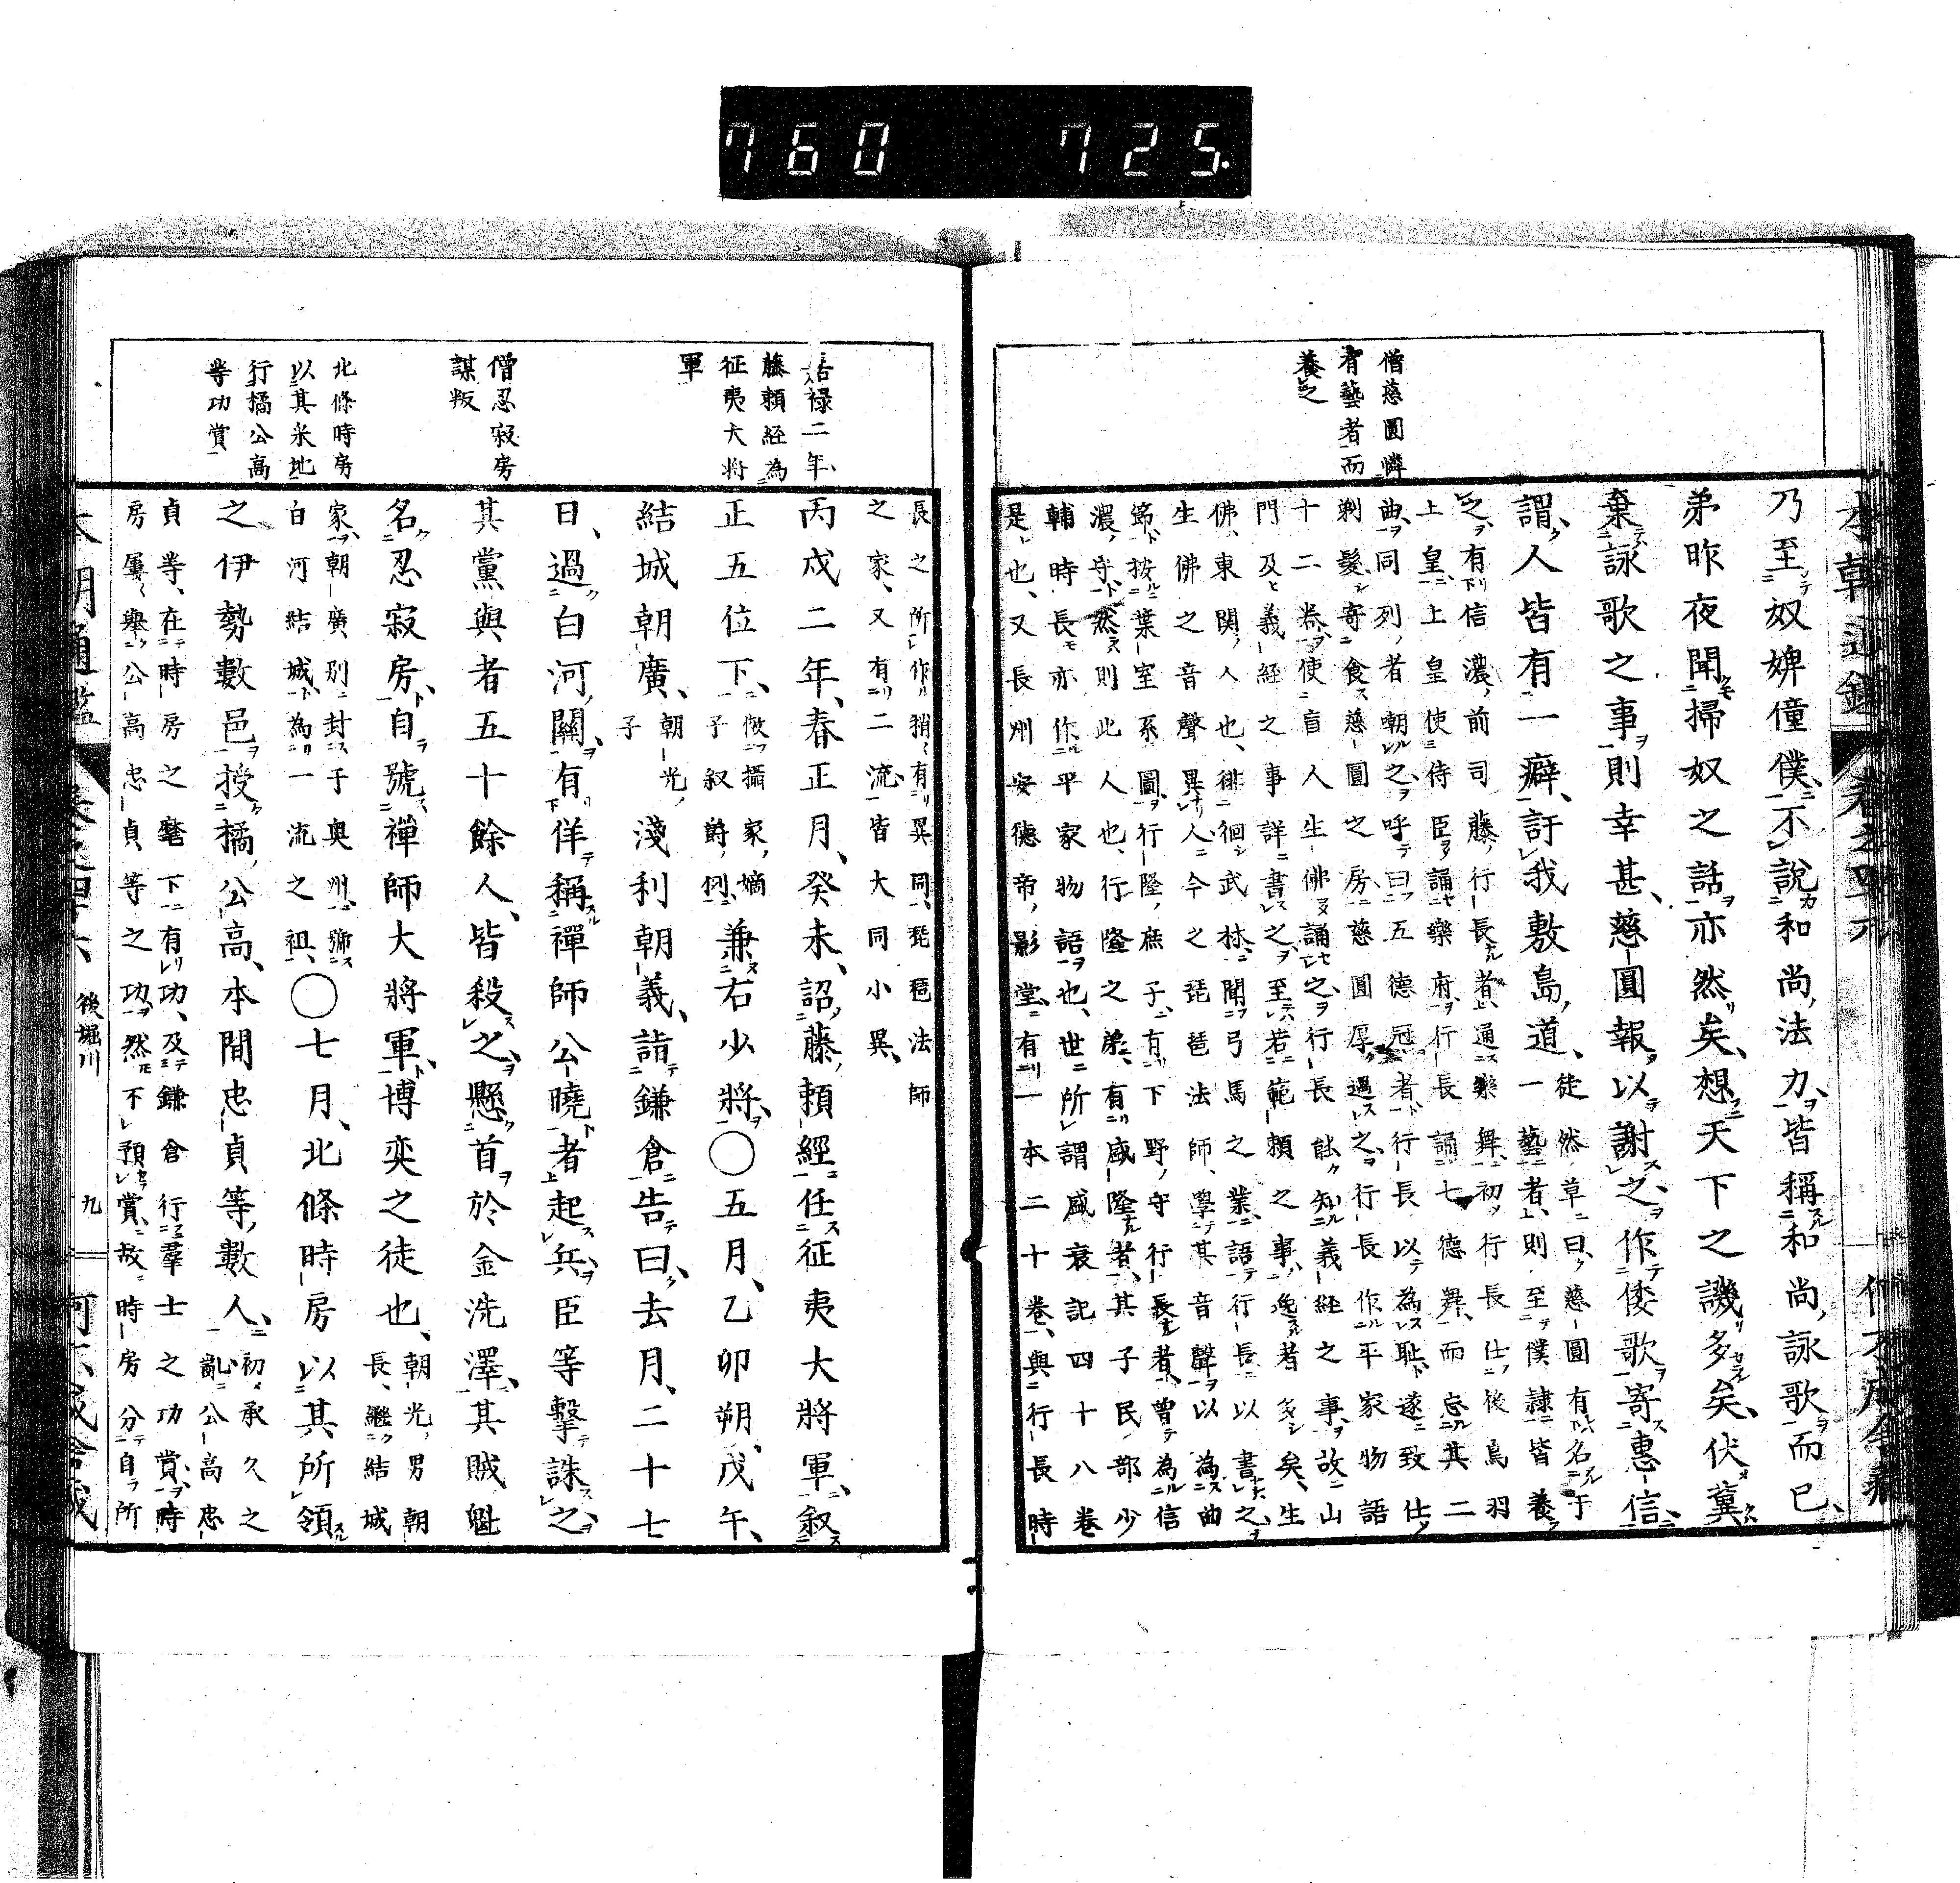 760 725.
僧慈圓憐
有藝者而
養之
乃至奴婢僮僕不說和尚法力皆稱和尚詠歌而已、
弟昨夜聞掃奴之話亦然矣、想天下之譏多矣、伏冀
棄詠歌之事則幸甚、慈圓報以謝之、作倭歌寄惠信、
謂、人皆有一癖、訝我敷島道、
徒然草曰、慈圓有名于
一藝者、則至僕隷皆養
之、有信濃前司藤行長者、通樂舞、初行長仕後鳥羽
上皇、上皇使侍臣誦樂府、行長誦七德舞、而忘其二
曲、同列者朝之、呼曰五德冠者、行長以為恥、遂致仕
剃髮、寄食慈圓之房、慈圓厚遇之、行長作平家物語
十二卷、使盲人生佛誦之、行長能知義經之事、故山
門及義經之事詳書之、至若範賴之事、逸者多矣、生
佛、東關人也、徘徊武林、聞弓馬之業、語行長以書之、
生佛之音聲異人、今之琵琶法師、學其音聲以為曲
節、按葉室系圖、行隆庶子、有下野守行長者、曾為信
濃守、然則此人也、行隆之弟、有盛隆者、其子民部少
輔時長亦作平家物語也、世所謂盛衰記四十八卷
是也、又長州安德帝影堂、有一本二十卷、與行長時
嘉禄二年、
藤賴経為
征夷大将
軍
僧忍寂房
謀叛
北條時房
以其釆地
行橘公高
等功賞
長之所作稍有異同、琵琶法師
之家、又有二流、皆大同小異、
丙戌二年、春正月、癸未、詔藤賴經任征夷大將軍、敘
正五位下、
倣攝家嫡
子叙爵例、
兼右少將、○五月、乙卯朔、戊午、
結城朝廣、
朝光
子
淺利朝義、詣鎌倉告曰、去月、二十七
日、過白河關、有佯稱禪師公曉者起兵、臣等擊誅之、
其黨與者五十餘人、皆殺之、懸首於金洗澤、其賊魁
名忍寂房、自號禪師大將軍、博奕之徒也、
朝光男朝
長、繼結城
家、朝廣別封于奥州、號
白河結城、為一流之祖、
○七月、北條時房以其所領
之伊勢數邑授橘公高、本間忠貞等數人、
初承久之
亂公高忠
貞等、在時房之麾下有功、及鎌倉行羣士之功賞、時
房屢舉公高忠貞等之功、然不預賞、故時房分自所
後堀川
九